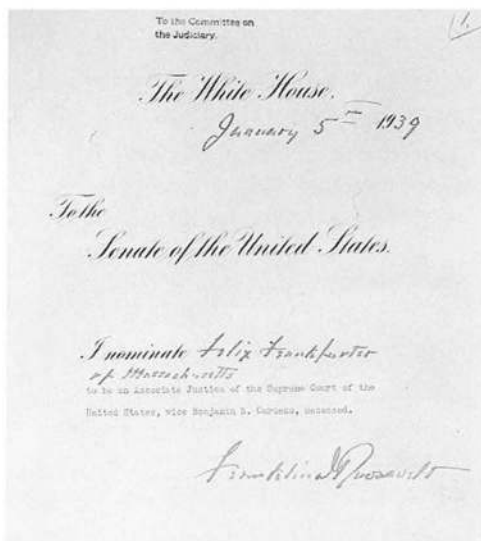 To the Committee on
the Judiciary.
The White House.
January 5th 1939
To the
Senate of the United States.
I nominate Felix Frankfurter
of Massachusetts
to be an Associate Justice of the Supreme Court of the
United States, vice Benjamin N. Cardozo, deceased.
Franklin D Roosevelt